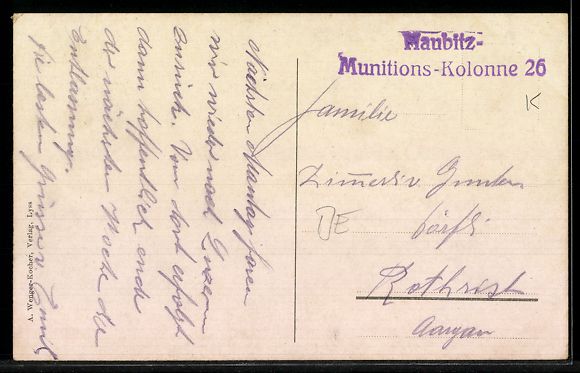 Nächsten Montag fahren
wir wieder nach Luzern
zurück. Von dort erfolgt
dann hoffentlich ende
der nächsten Woche die
Entlassung.
die besten Grüsse v. Emil
Haubitz-
Munitions-Kolonne 26
K
Familie
v. Gunten
DE
Dörfli
Rothrist
Aargau
A. Wenger-Kocher, Verlag, Lyss